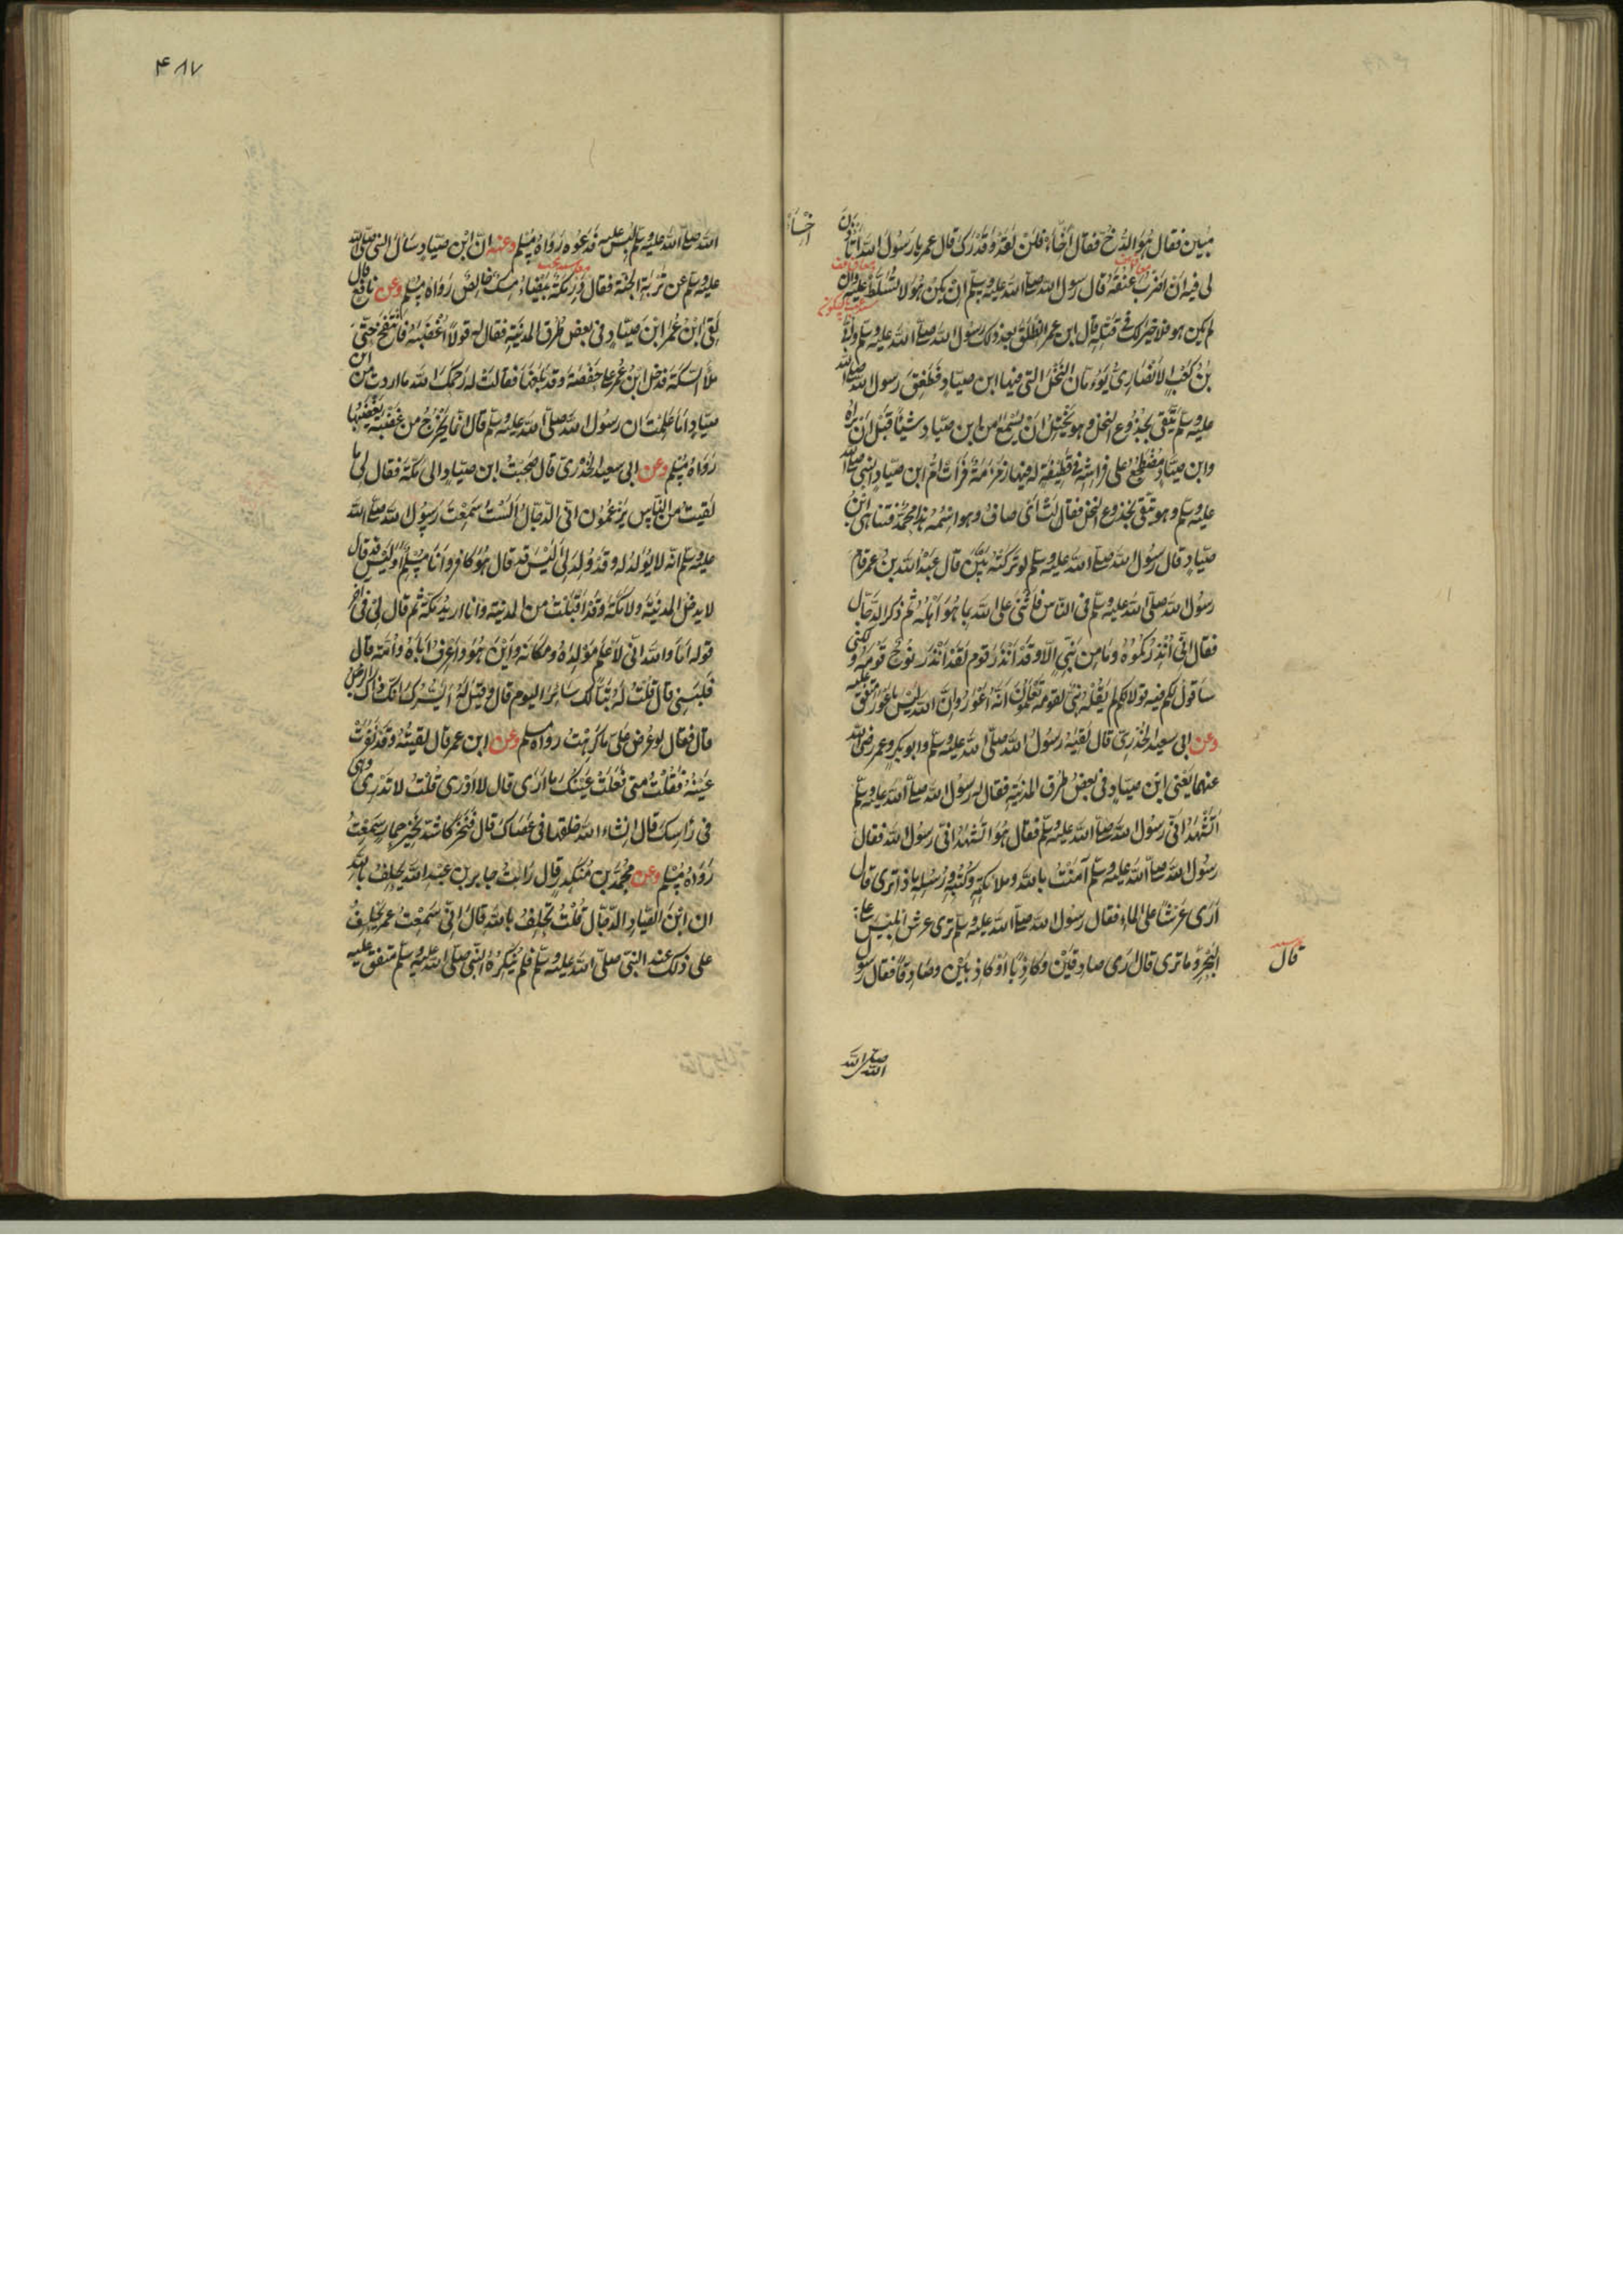 مبين فقال هو الدخ فقال اخسأ فلن تعدو قدرك قال عمر يا رسول الله اتأذن
لي فيه ان اضرب عنقه قال رسول الله صلى الله عليه وسلم ان يكن هو لا تسلط عليه وان
لم يكن هو فلا خير لك في قتله قال ابن عمر انطلق بعد ذلك رسول الله صلى الله عليه وسلم وابي
بن كعب الانصاري يؤمان النخل التي فيها ابن صياد فطفق رسول الله صلى الله
عليه وسلم يتقي بجذوع النخل وهو يختل ان يسمع من ابن صياد شيئا قبل ان يراه
وابن صياد مضطجع على فراشه في قطيفة له فيها زمزمة فرأت ام ابن صياد النبي صلى الله
عليه وسلم وهو يتقي بجذوع النخل فقالت اي صاف وهو اسمه هذا محمد فتناهى ابن
صياد قال رسول الله صلى الله عليه وسلم لو تركته بين قال عبد الله بن عمر قام
رسول الله صلى الله عليه وسلم في الناس فاثنى على الله بما هو اهله ثم ذكر الدجال
فقال اني انذركموه وما من نبي الا وقد انذر قومه لقد انذر نوح قومه ولكني
ساقول لكم فيه قولا لم يقله نبي لقومه تعلمون انه اعور وان الله ليس باعور متفق عليه
وعن ابي سعيد الخدري قال لقيه رسول الله صلى الله عليه وسلم وابو بكر وعمر رضي الله
عنهما يعني ابن صياد في بعض طرق المدينة فقال له رسول الله صلى الله عليه وسلم
اتشهد اني رسول الله صلى الله عليه وسلم فقال هو اتشهد اني رسول الله فقال
رسول الله صلى الله عليه وسلم آمنت بالله وملائكته وكتبه ورسله ماذا ترى قال
ارى عرشا على الماء فقال رسول الله صلى الله عليه وسلم ترى عرش ابليس على
البحر وما ترى قال ارى صادقين وكاذبا او كاذبين وصادقا فقال رسول
قال
اخسأ
صلى الله
۴۸۷
الله صلى الله عليه وسلم لبس عليه فدعوه رواه مسلم وعنه ان ابن صياد سأل النبي صلى الله
عليه وسلم عن تربة الجنة فقال درمكة بيضاء مسك خالص رواه مسلم وعن نافع قال
لقي ابن عمر ابن صياد في بعض طرق المدينة فقال له قولا اغضبه فانتفخ حتى
ملأ السكة فدخل ابن عمر على حفصة وقد بلغها فقالت له رحمك الله ما اردت من ابن
صياد اما علمت ان رسول الله صلى الله عليه وسلم قال انما يخرج من غضبة يغضبها
رواه مسلم وعن ابي سعيد الخدري قال صحبت ابن صياد الى مكة فقال لي ما
لقيت من الناس يزعمون اني الدجال الست سمعت رسول الله صلى الله
عليه وسلم انه لا يولد له وقد ولد لي اليس قد قال هو كافر وانا مسلم اوليس قد قال
لا يدخل المدينة ولا مكة وقد اقبلت من المدينة وانا اريد مكة ثم قال لي في آخر
قوله اما والله اني لاعلم مولده ومكانه واين هو واعرف اباه وامه قال
فلبسني قال قلت له تبا لك سائر اليوم قال وقيل له ايسرك انك ذاك الرجل
قال فقال لو عرض علي ما كرهت رواه مسلم وعن ابن عمر قال لقيته وقد نفرت
عينه فقلت متى فعلت عينك ما ارى قال لا ادري قلت لا تدري وهي
في راسك قال ان شاء الله خلقها في عصاك قال فنخر كاشد نخير حمار سمعت
رواه مسلم وعن محمد بن منكدر قال رأيت جابر بن عبد الله يحلف بالله
ان ابن الصياد الدجال قلت تحلف بالله قال اني سمعت عمر يحلف
على ذلك عند النبي صلى الله عليه وسلم فلم ينكره النبي صلى الله عليه وسلم متفق عليه